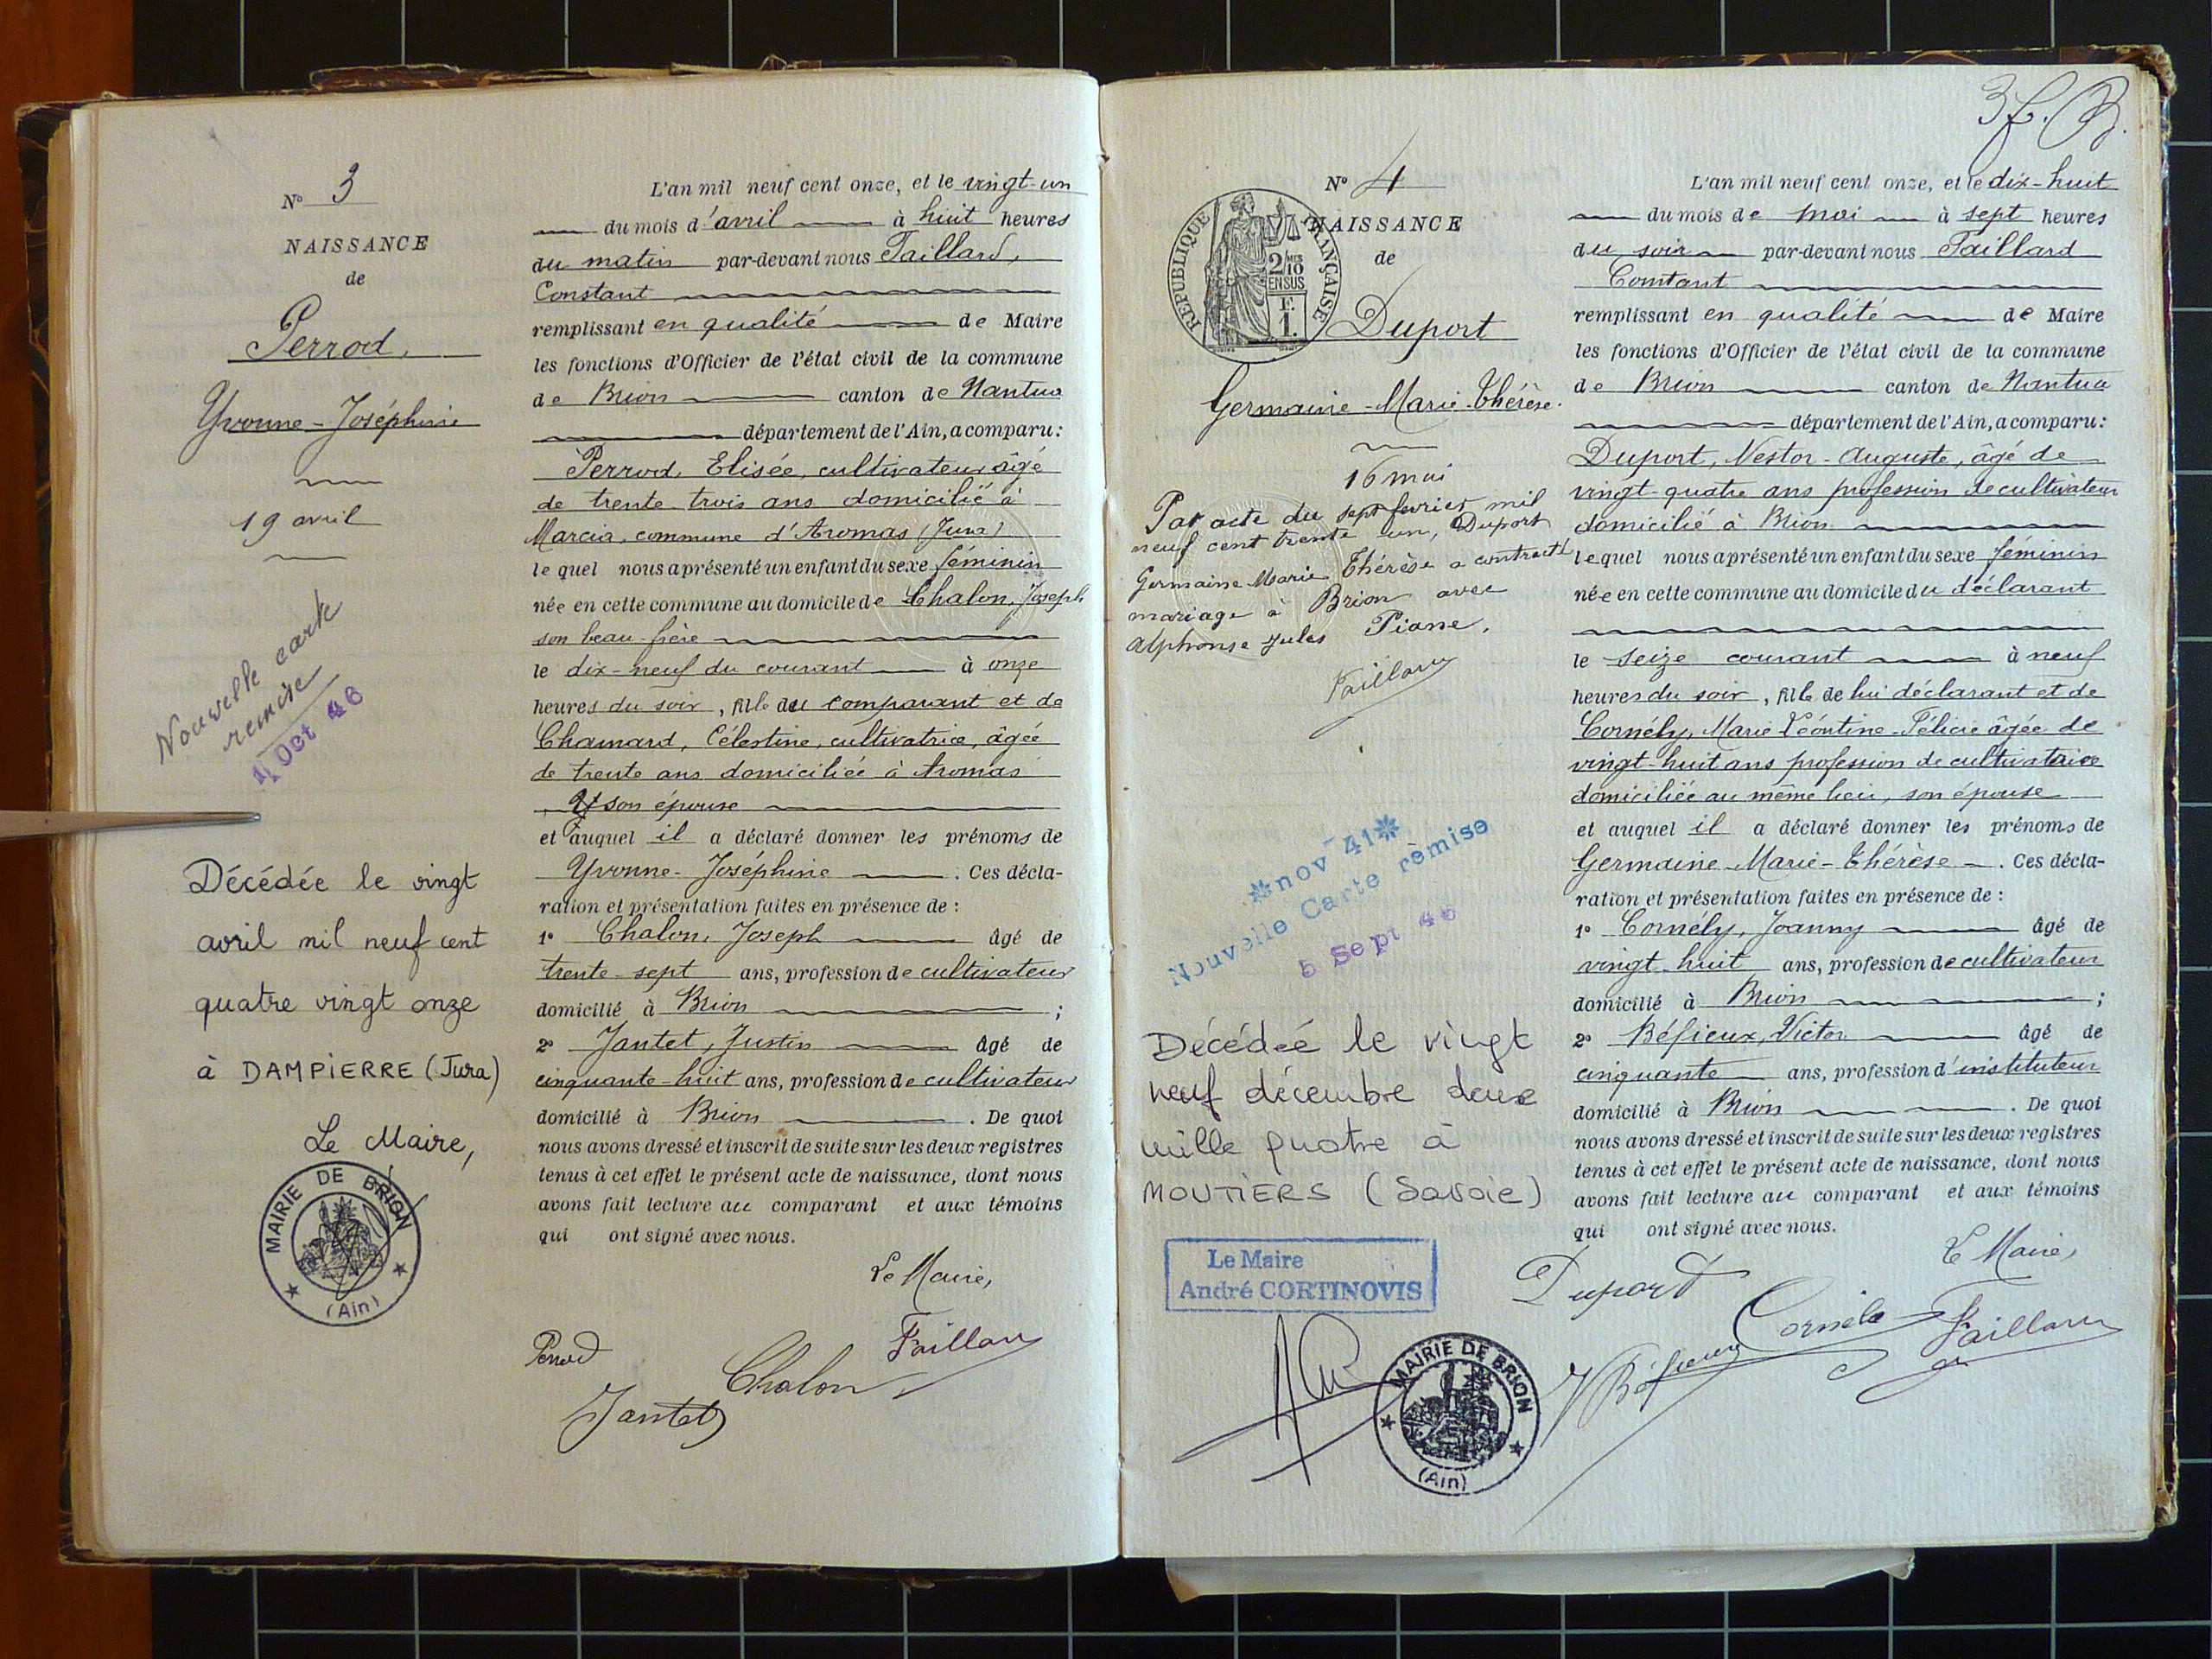 N° 3
NAISSANCE
de
Perrod,
Yvonne-Joséphine
19 avril
Nouvelle carte
remise
4 Oct 46
Décédée le vingt
avril mil neuf cent
quatre vingt onze
à DAMPIERRE (Jura)
Le Maire,
MAIRIE DE BRION
(Ain)
L'an mil neuf cent onze, et le vingt-un
du mois d'avril à huit heures
du matin par-devant nous Taillard,
Constant
remplissant en qualité de Maire
les fonctions d'Officier de l'état civil de la commune
de Brion canton de Nantua
département de l'Ain, a comparu :
Perrod, Elisée, cultivateur âgé
de trente trois ans domicilié à
Marcia, commune d'Aromas (Jura)
lequel nous a présenté un enfant du sexe féminin
née en cette commune au domicile de Chalon, Joseph
son beau-frère
le dix-neuf du courant à onze
heures du soir, fille du comparant et de
Chamard, Célestine, cultivatrice, âgée
de trente ans domiciliée à Aromas
son épouse
et auquel il a déclaré donner les prénoms de
Yvonne-Joséphine . Ces décla-
ration et présentation faites en présence de :
1° Chalon, Joseph âgé de
trente-sept ans, profession de cultivateur
domicilié à Brion ;
2° Jantet, Justin âgé de
cinquante-huit ans, profession de cultivateur
domicilié à Brion . De quoi
nous avons dressé et inscrit de suite sur les deux registres
tenus à cet effet le présent acte de naissance, dont nous
avons fait lecture au comparant et aux témoins
qui ont signé avec nous.
Le Maire,
Perrod
Chalon
Taillard
Jantet
N° 4
NAISSANCE
de
REPUBLIQUE FRANÇAISE
2/10 MES
EN SUS
F.
1.
Duport
Germaine-Marie-Thérèse.
16 mai
Par acte du sept fevrier mil
neuf cent trente un, Duport
Germaine Marie Thérèse a contracté
mariage à Brion avec
Alphonse Jules Piane.
Taillard
nov 41
Nouvelle Carte remise
5 Sept 46
Décédée le vingt
neuf décembre deux
mille quatre à
MOUTIERS (Savoie)
Le Maire
André CORTINOVIS
MAIRIE DE BRION
(Ain)
3 f. B.
L'an mil neuf cent onze, et le dix-huit
du mois de mai à sept heures
du soir par-devant nous Taillard
Constant
remplissant en qualité de Maire
les fonctions d'Officier de l'état civil de la commune
de Brion canton de Nantua
département de l'Ain, a comparu :
Duport, Nestor-Auguste, âgé de
vingt-quatre ans profession de cultivateur
domicilié à Brion
lequel nous a présenté un enfant du sexe féminin
née en cette commune au domicile du déclarant
le seize courant à neuf
heures du soir, fille de lui déclarant et de
Cornély, Marie Léontine-Félicie âgée de
vingt-huit ans profession de cultivatrice
domiciliée au même lieu, son épouse
et auquel il a déclaré donner les prénoms de
Germaine-Marie-Thérèse . Ces décla-
ration et présentation faites en présence de :
1° Cornély, Joanny âgé de
vingt-huit ans, profession de cultivateur
domicilié à Brion ;
2° Béfieux, Victor âgé de
cinquante ans, profession d'instituteur
domicilié à Brion . De quoi
nous avons dressé et inscrit de suite sur les deux registres
tenus à cet effet le présent acte de naissance, dont nous
avons fait lecture au comparant et aux témoins
qui ont signé avec nous.
Le Maire,
Duport
Cornély
Taillard
V Béfieux